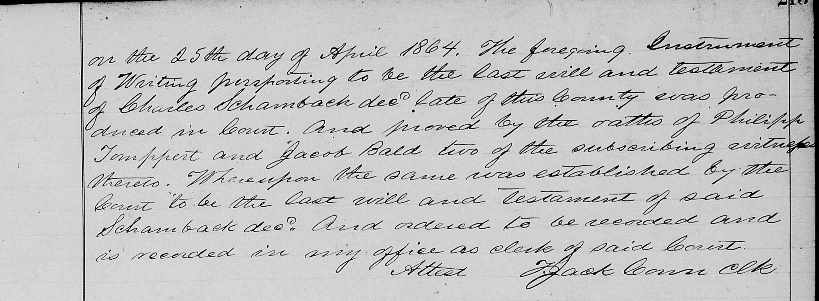 on the 25th day of April 1864. The foregoing Instrument
of Writing purporting to be the last will and testament
of Charles Schamback decd late of this County was pro-
duced in Court. And proved by the oaths of Philipp
Tomppert and Jacob Bald two of the subscribing witnesses
thereto. Whereupon the same was established by the
Court to be the last will and testament of said
Schamback decd. And ordered to be recorded and
is recorded in my office as clerk of said Court.
Attest Jack Conn Clk